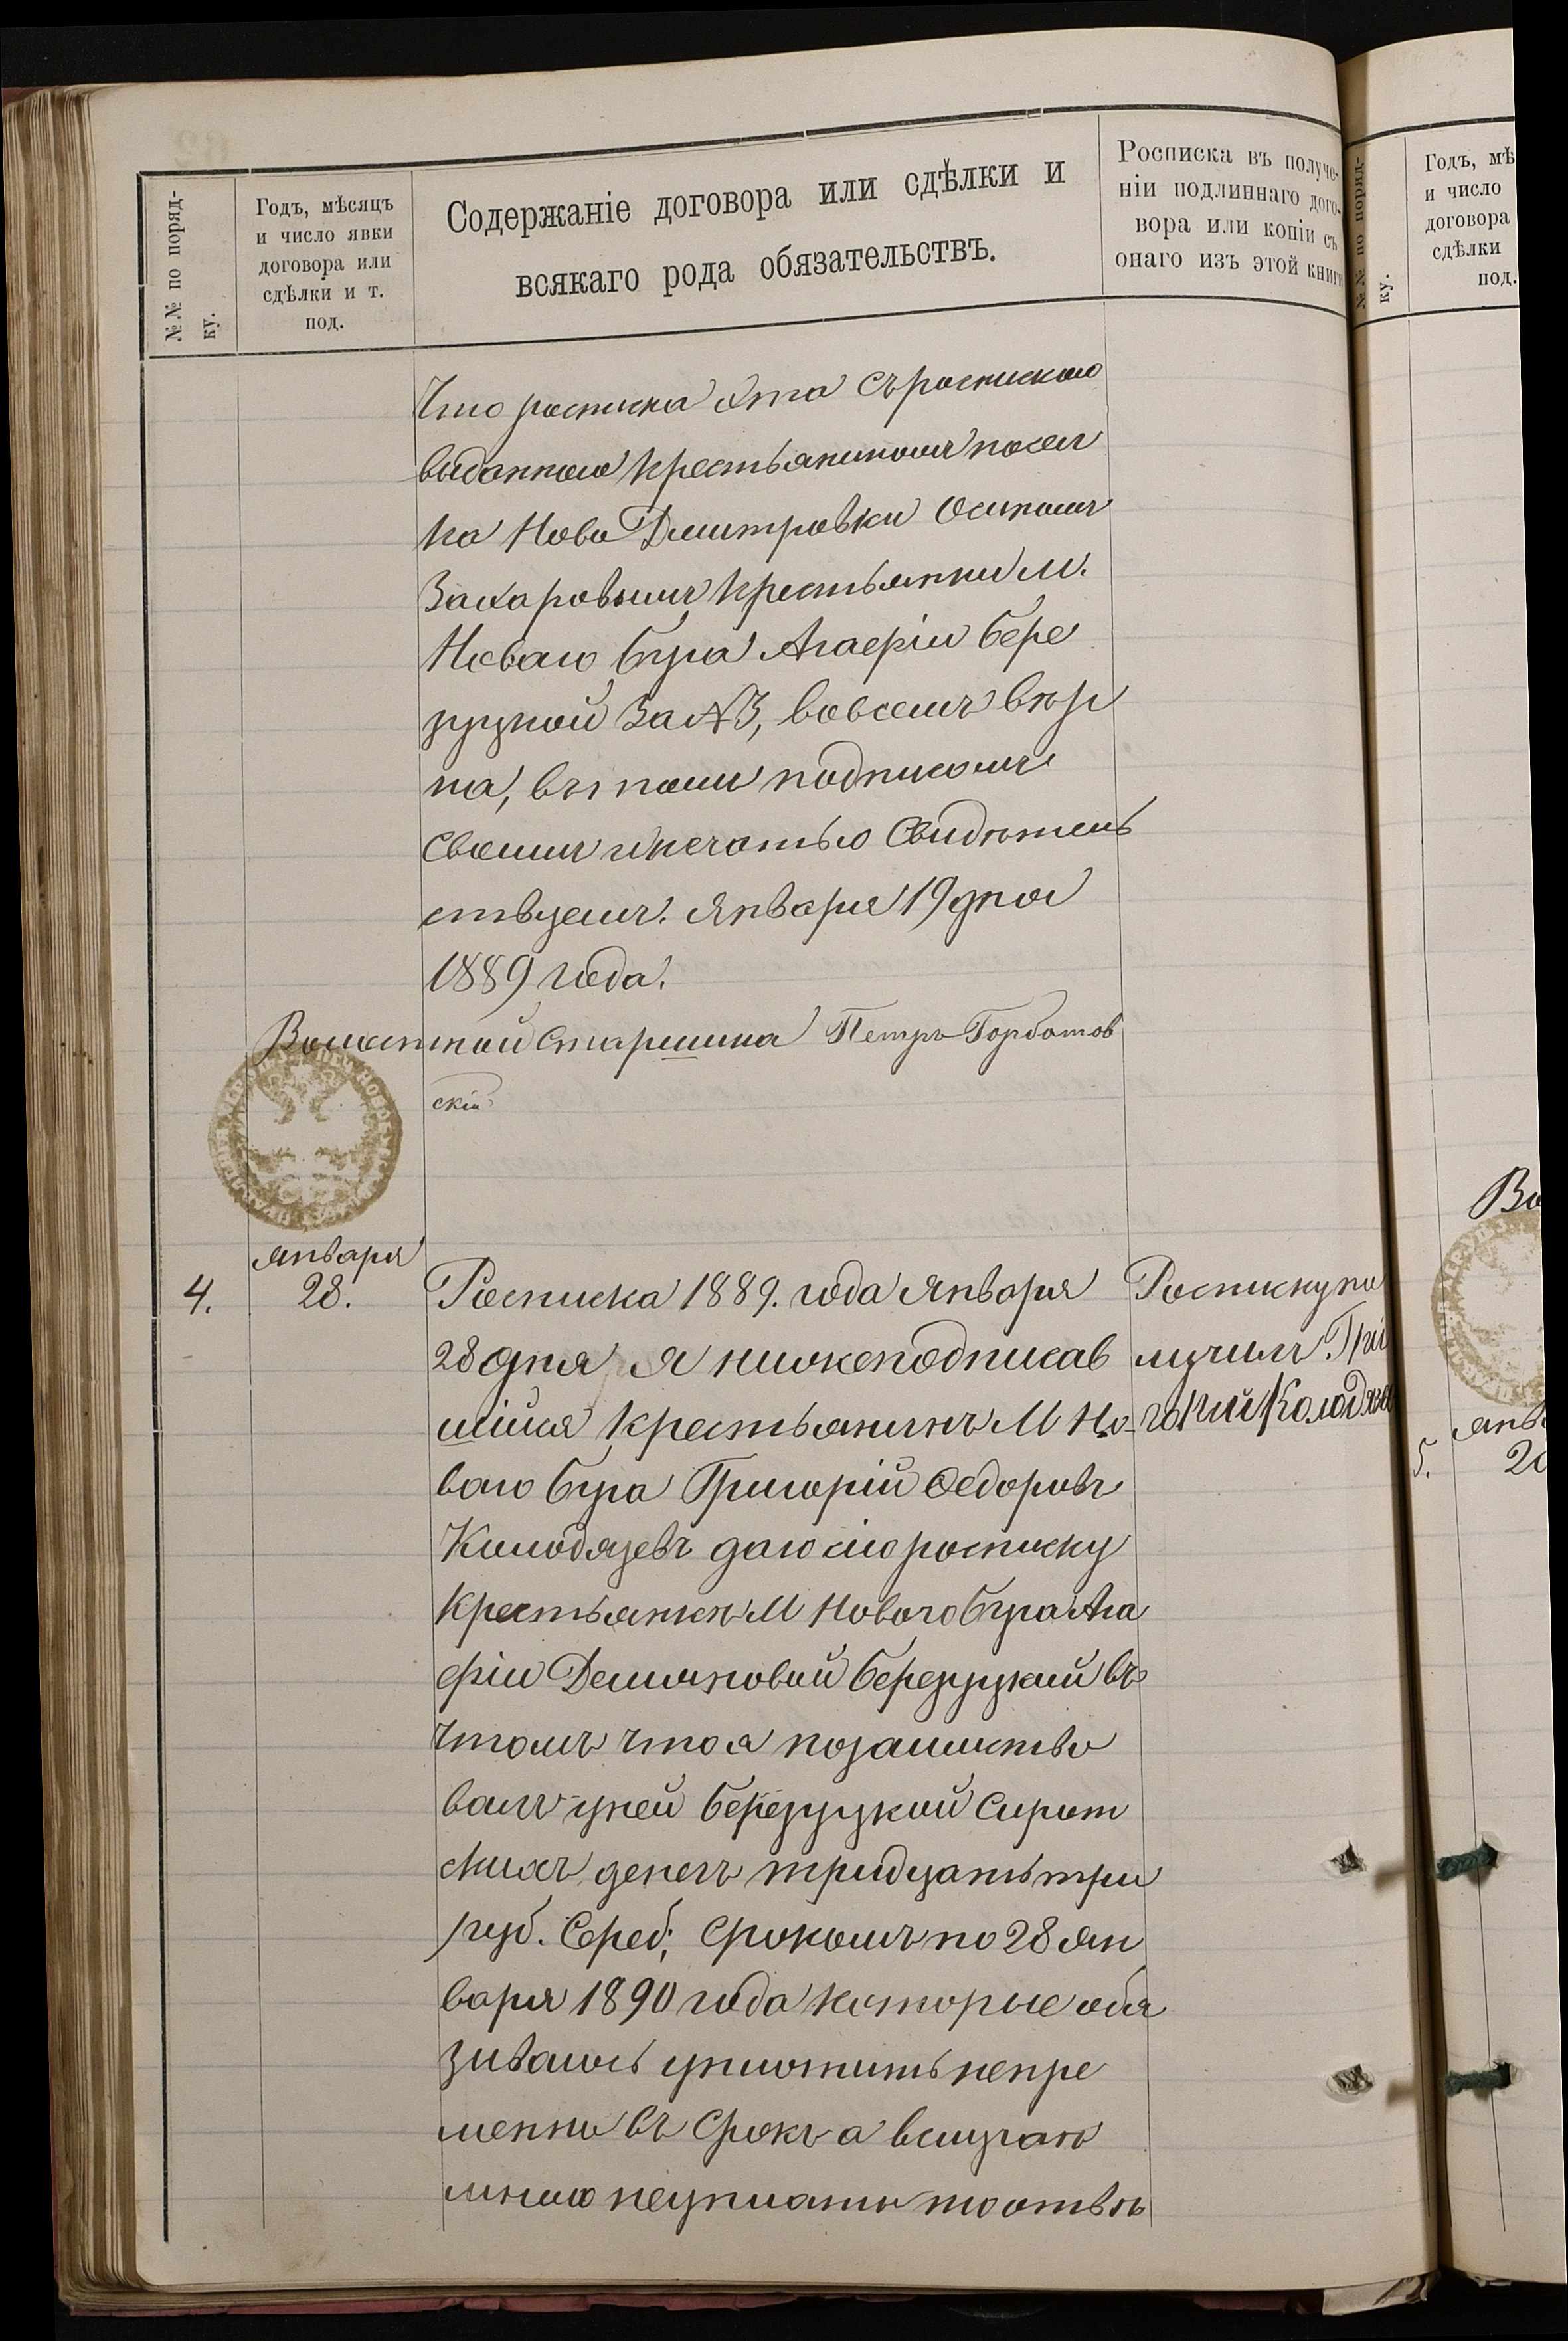 №№ по поряд-
ку.
Годъ, мѣсяцъ
и число явки
договора или
сдѣлки и т.
под.
Содержаніе договора или сдѣлки и
всякаго рода обязательствъ.
Росписка въ получе-
ніи подлиннаго дого-
вора или копіи съ
онаго изъ этой книги
Что росписка эта съ роспискою
виданною крестьяниномъ посел
ка Ново Дмитровки Осипомъ
Захаровымъ крестьянки М.
Новаго Буга Агаеріи Бере
зуцкой За №3, вовсемъ вѣр
на, въ томъ подписомъ
своимъ и печатью Свидѣтель
ствуемъ. Января 19 дня
1889 года.
Волостной Старшина Петръ Горбатов
скій
4.
Января
28.
Росписка 1889. года Января
28 дня, я нижеподписав
шійся крестьянинъ М Но-
ваго Буга Григорій Федоровъ
Колодязевъ даю сію росписку
Крестьянкѣ М Новаго Буга Ага
еріи Демяновой Березуцкой въ
томъ что я позаимство
валъ у ней Березуцкой Сирот
скихъ денегъ тридцать три
руб. Сереб; Срокомъ по 28 Ян
варя 1890 года которые обя
зиваюсь уплотить непре
менно въ Срокъ а вслучаю
мною неуплаты то отвѣ
Росписку по
лучилъ. Гри
горий Колодязе
№№ по поряд-
ку.
Годъ, мѣ
и число
договора
сдѣлки
под.
Во
5.
янв
20